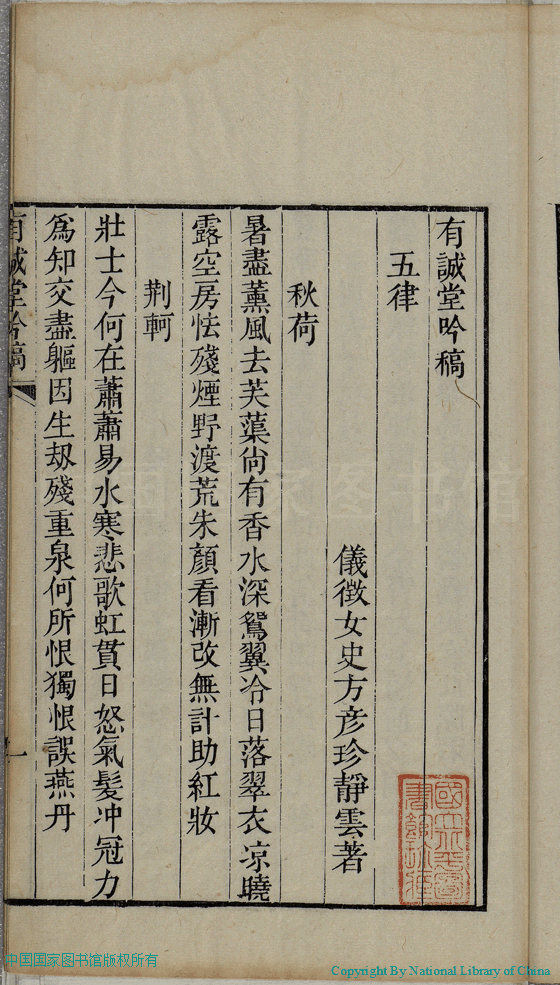 有誠堂吟稿
五律
儀徵女史方彥珍靜雲著
秋荷
暑盡薰風去芙蕖尙有香水深鴛翼冷日落翠衣凉曉
露空房怯殘煙野渡荒朱顏看漸改無計助紅妝
荆軻
壯士今何在蕭蕭易水寒悲歌虹貫日怒氣髮冲冠力
爲知交盡軀因生刼殘重泉何所恨獨恨誤燕丹
有誠堂吟稿
一
中国国家图书馆版权所有
Copyright By National Library of China